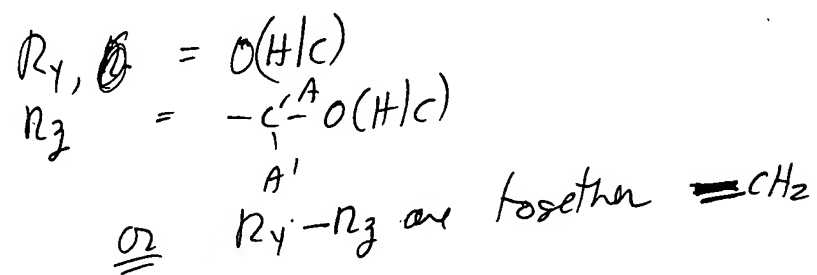 Ry, = O(H/C)
Rz = -C-O(H/C)
A
A'
or Ry-Rz are together =CH2